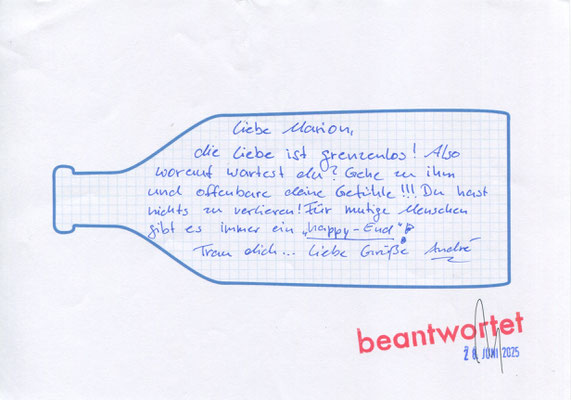 Liebe Marion,
die Liebe ist grenzenlos! Also
worauf wartest du? Gehe zu ihm
und offenbare deine Gefühle!!! Du hast
nichts zu verlieren! Für mutige Menschen
gibt es immer ein „happy-End"!
Trau dich... Liebe Grüße André
beantwortet
JUNI 2025